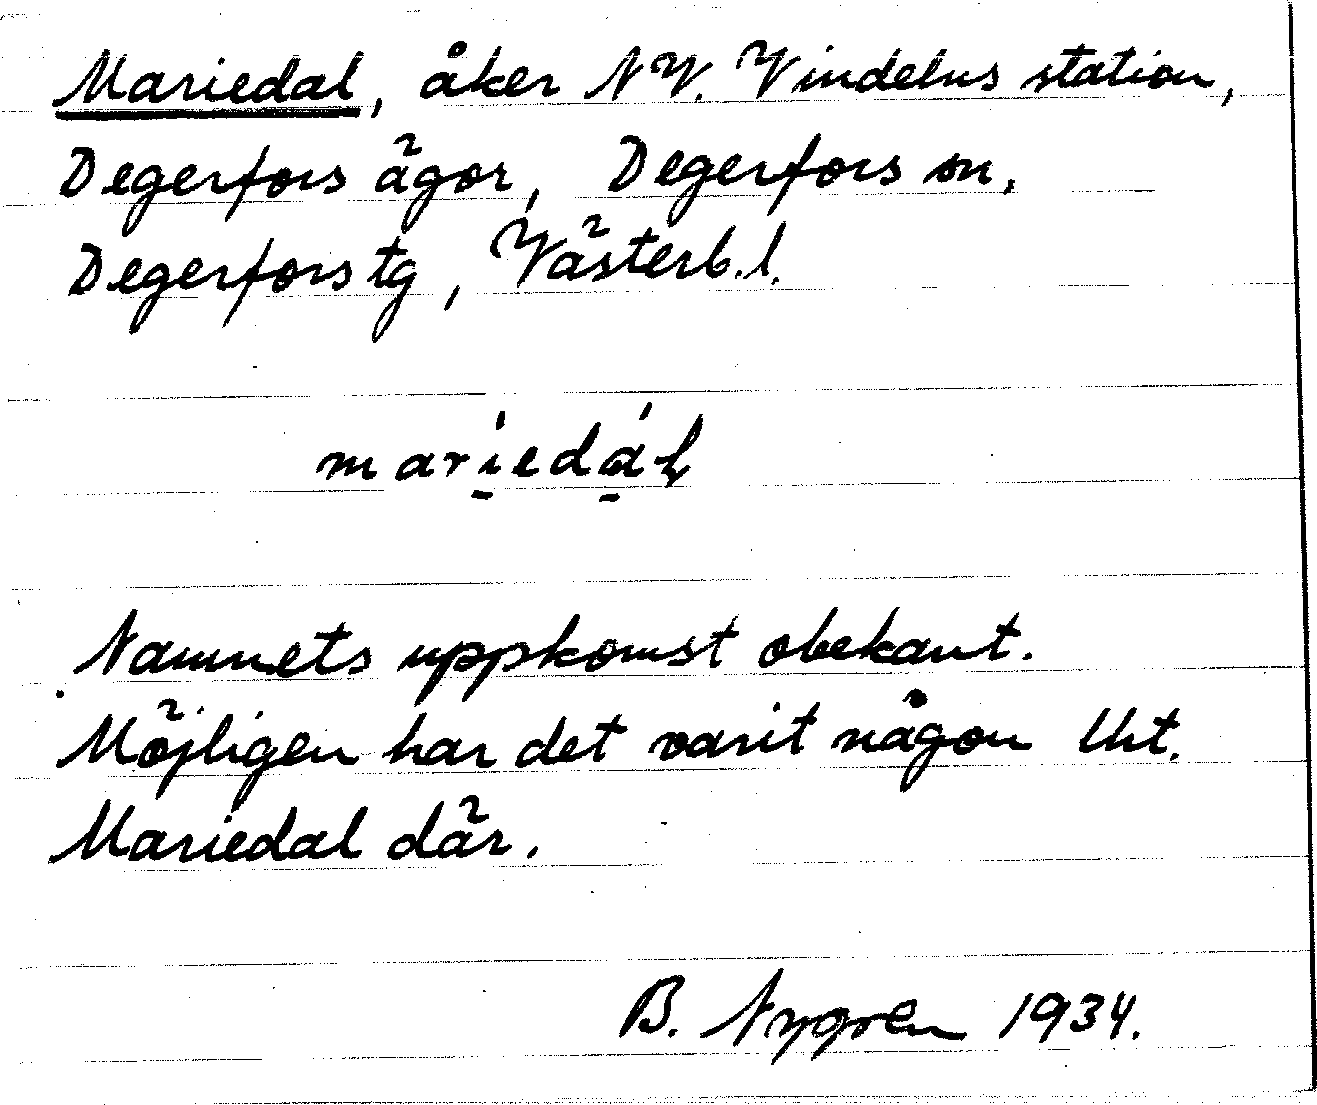 Mariedal, åker NV. Vindelns station,
Degerfors ägor, Degerfors sn,
Degerfors tg, Västerb. l.
marí̱edá̱ł
Namnets uppkomst obekant.
Möjligen har det varit någon lht.
Mariedal där.
B. Nygren 1934.